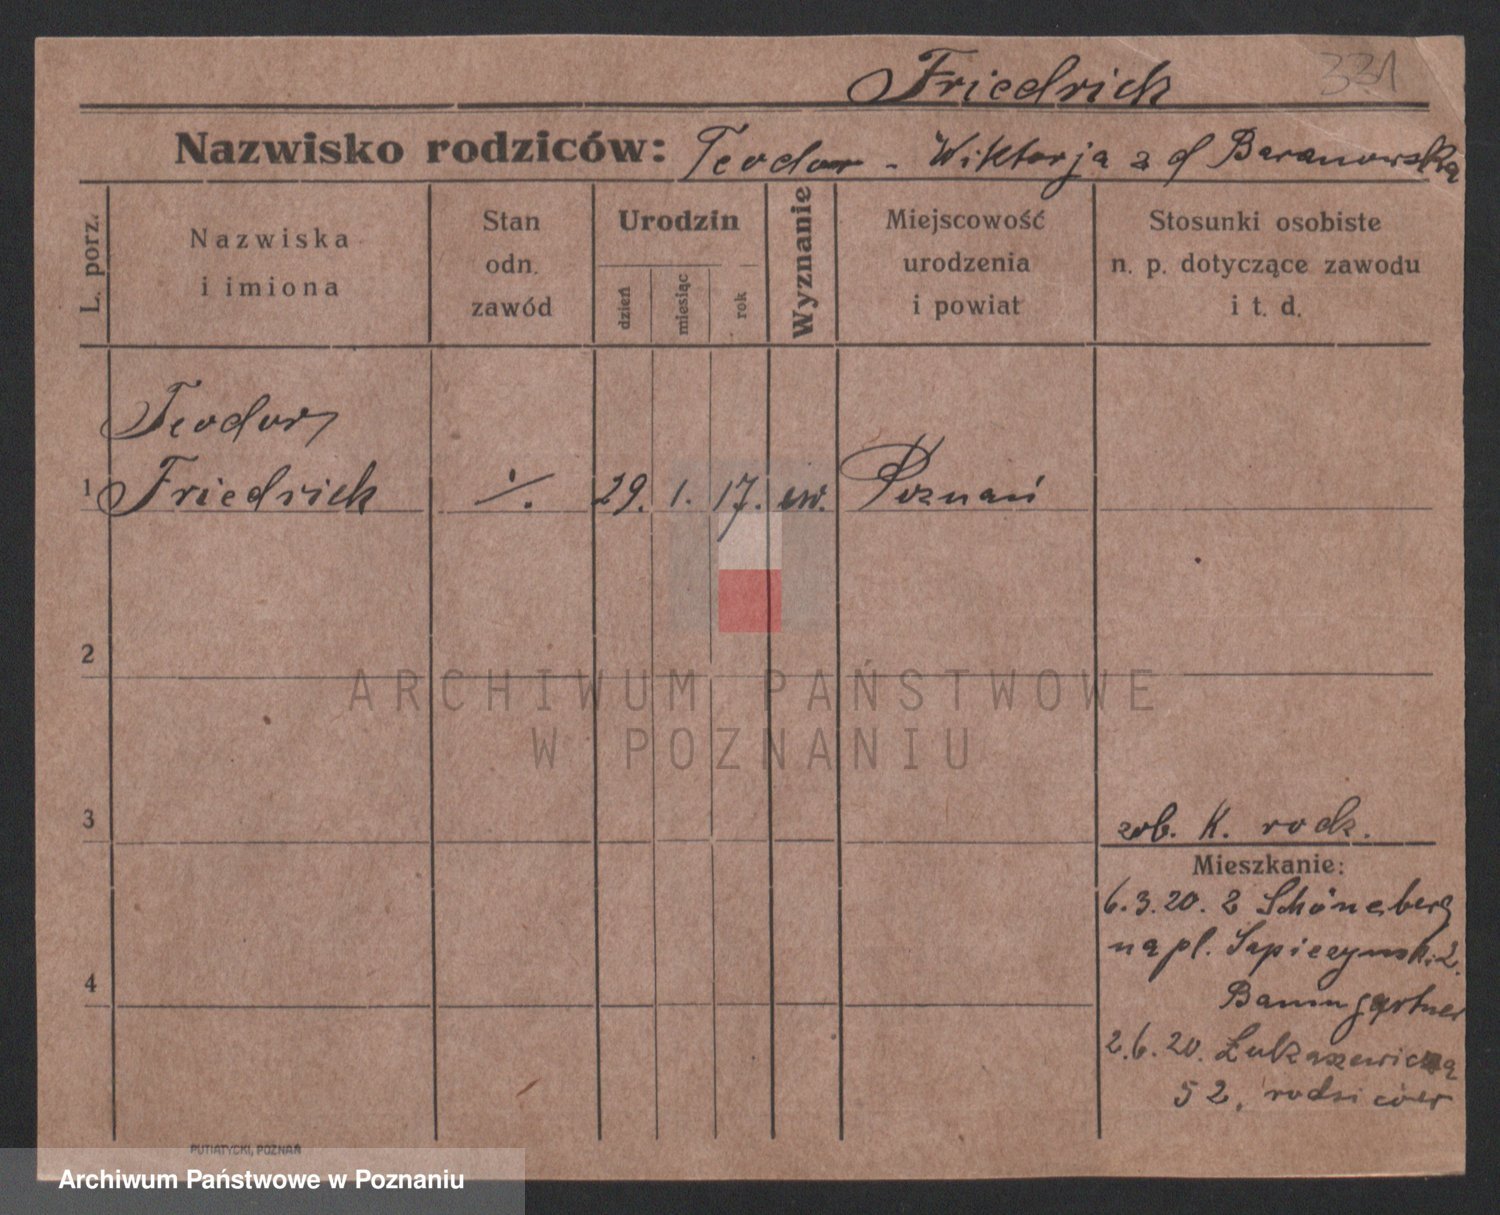 Friedrich 331
Nazwisko rodziców: Teodor - Wiktorja z d Baranowska
L. porz.
Nazwiska
i imiona
Stan
odn.
zawód
Urodzin
dzień
miesiąc
rok
Wyznanie
Miejscowość
urodzenia
i powiat
Stosunki osobiste
n. p. dotyczące zawodu
i t. d.
Teodor
1 Friedrich ./. 29. 1. 17. ew. Poznań
2
ARCHIWUM PAŃSTWOWE
W POZNANIU
3
zob. K. rodz.
Mieszkanie:
6.3.20. z Schöneberg
na pl. Sapieżynski 2.
Baumgartner
4
2.6.20. Łukaszewicza
52, rodziców
PUTIATYCKI, POZNAŃ
Archiwum Państwowe w Poznaniu